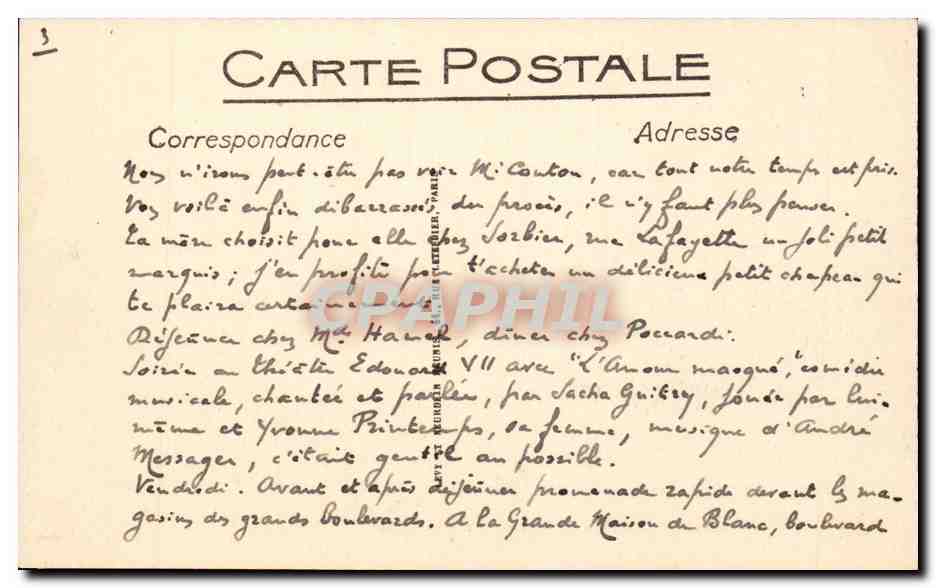 3
CARTE POSTALE
Correspondance
Adresse
Nous n'irons peut-être pas voir Mr Couton, car tout notre temps est pris.
Vous voilà enfin débarrassés du procès, il n'y faut plus penser.
Ta mère choisit pour elle chez Sorbier, rue Lafayette un joli petit
marquis ; j'en profite pour t'acheter un délicieux petit chapeau qui
te plaira certainement.
Déjeuner chez Mde Hamel, dîner chez Poccardi.
Soirée au théâtre Edouard VII avec "L'Amour masqué", comédie
musicale, chantée et parlée, par Sacha Guitry, jouée par lui-
même et Yvonne Printemps, sa femme, musique d'André
Messager, c'était gentil au possible.
Vendredi. Avant et après déjeuner promenade rapide devant les ma-
gasins des grands boulevards. A la Grande Maison de Blanc, boulevard
LEVY ET NEURDEIN REUNIS, 44, RUE LETELLIER, PARIS
CPAPHIL